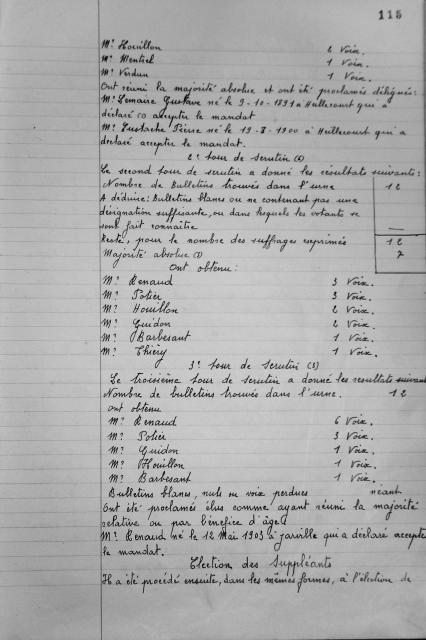 115
Mr Houillon 2 Voix.
Mr Mentrel 1 Voix
Mr Verdun 1 Voix.
Ont réuni la majorité absolue et ont été proclamés délégués:
Mr Lemaire Gustave né le 9-10-1891 à Heillecourt qui a
déclaré accepter le mandat
Mr Eustache Pierre né le 19-8-1900 à Heillecourt qui a
déclaré accepter le mandat.
2e tour de scrutin
Le second tour de scrutin a donné les résultats suivants:
Nombre de Bulletins trouvés dans l'urne 12
A déduire: Bulletins blancs ou ne contenant pas une
désignation suffisante, ou dans lesquels les votants se
sont fait connaître —
Reste, pour le nombre des suffrages exprimés 12
Majorité absolue 7
Ont obtenu:
Mr Renaud 3 Voix.
Mr Potier 3 Voix.
Mr Houillon 2 Voix.
Mr Guidon 2 Voix.
Mr Barbesant 1 Voix.
Mr Thiéry 1 Voix.
3e tour de scrutin (3)
Le troisième tour de scrutin a donné les résultats suivants
Nombre de bulletins trouvés dans l'urne. 12
Ont obtenu
Mr Renaud 6 Voix.
Mr Potier 3 Voix.
Mr Guidon 1 Voix.
Mr Houillon 1 Voix.
Mr Barbesant 1 Voix.
Bulletins blancs, nuls ou voix perdues néant
Ont été proclamés élus comme ayant réuni la majorité
relative ou par bénéfice d'âge
Mr Renaud né le 12 Mai 1903 à Jarville qui a déclaré accepter
le mandat.
Election des Suppléants
Il a été procédé ensuite, dans les mêmes formes, à l'élection de